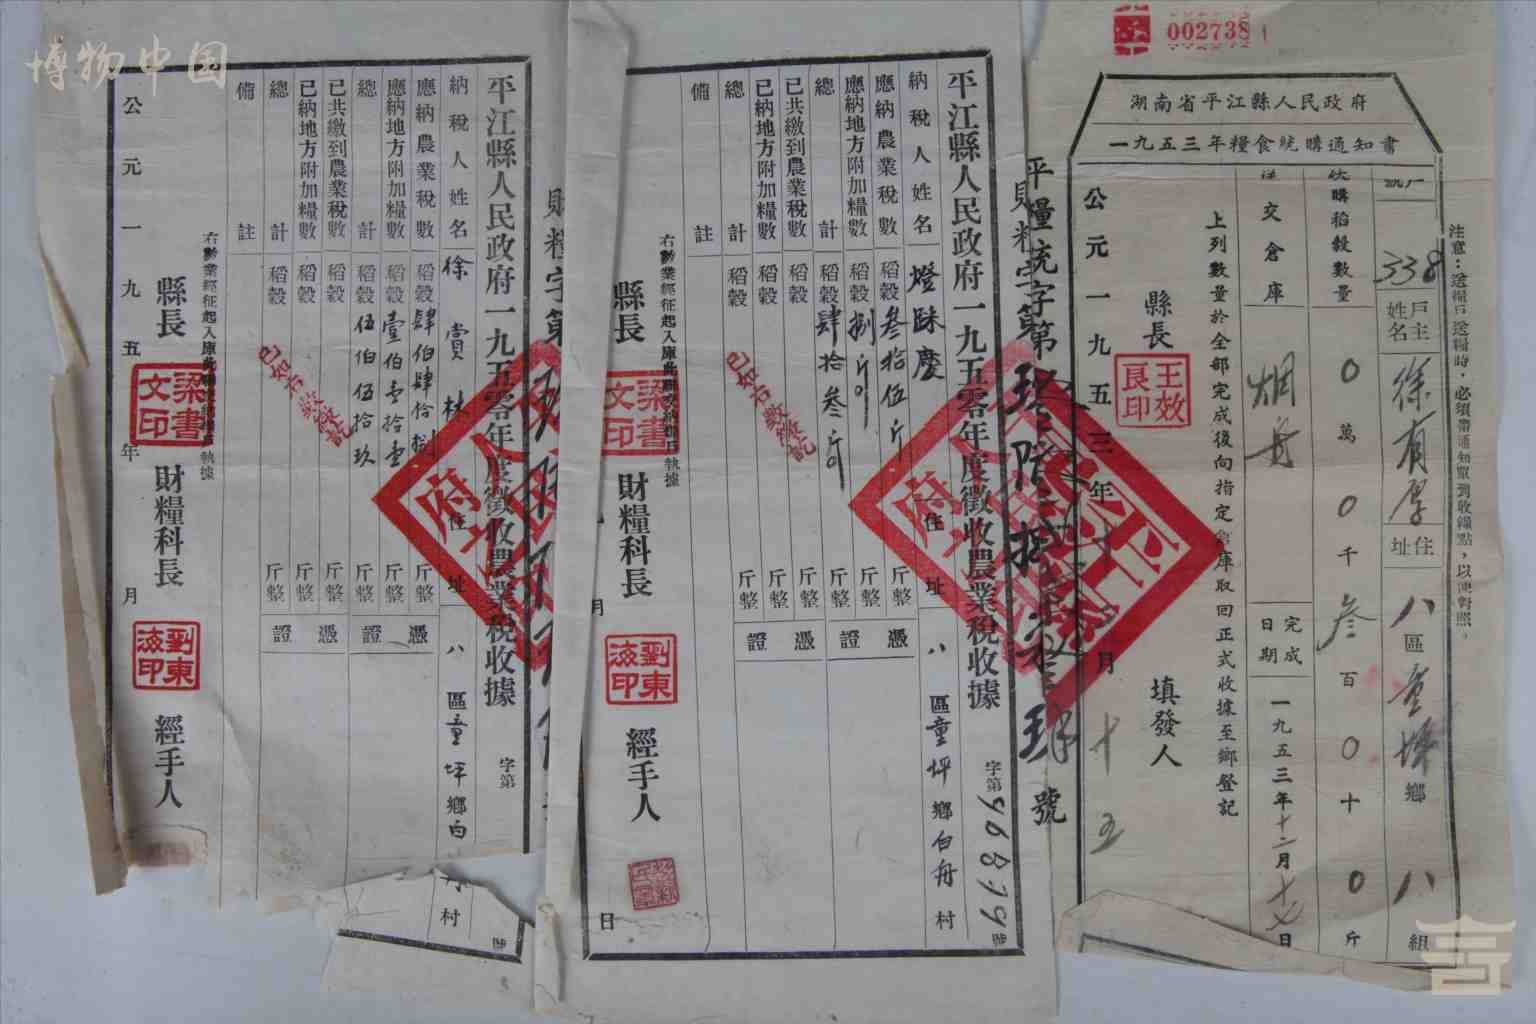 博物中国
002738
湖南省平江縣人民政府
一九五三年糧食統購通知書
注意：送糧戶送糧時，必須帶通知單到收糧點，以便對照。
338
戶主姓名
徐有厚
住址
八區
鄉
八組
購稻穀數量
0萬0千叁百0十0斤
交倉庫
完成日期
一九五三年十二月十七日
上列數量於全部完成後向指定倉庫取回正式收據至鄉登記
縣長
王效良印
填發人
公元一九五三年
月十五
平糧統字第
號
財糧字第
平江縣人民政府一九五零年度徵收農業稅收據
字第96879號
納稅人姓名
住址
八區童坪鄉白舟村
應納農業稅數
稻穀叁拾伍斤
斤整
應納地方附加糧數
稻穀捌斤
斤整
總計
稻穀肆拾叁斤
斤整
憑證
已共繳到農業稅數
稻穀
斤整
已納地方附加糧數
稻穀
斤整
總計
稻穀
斤整
憑證
已如右數收訖
備註
縣長
梁書文印
財糧科長
劉東海印
經手人
月
日
財糧字第
平江縣人民政府一九五零年度徵收農業稅收據
字第
號
納稅人姓名
徐賞林
住址
八區童坪鄉白舟村
應納農業稅數
稻穀肆佰肆拾捌
斤整
應納地方附加糧數
稻穀壹佰壹拾壹
斤整
總計
稻穀伍佰伍拾玖
斤整
憑證
已共繳到農業稅數
稻穀
斤整
已納地方附加糧數
稻穀
斤整
總計
稻穀
憑證
已如右數收訖
備註
縣長
梁書文印
財糧科長
劉東海印
經手人
公元一九五
年
月